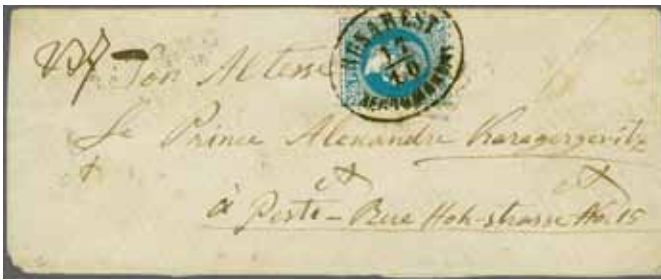 BUKAREST
17
10
Son Altesse
Le Prince Alexandre Karageorgevitz
à Peste – Rue Hoh-strasse No. 15